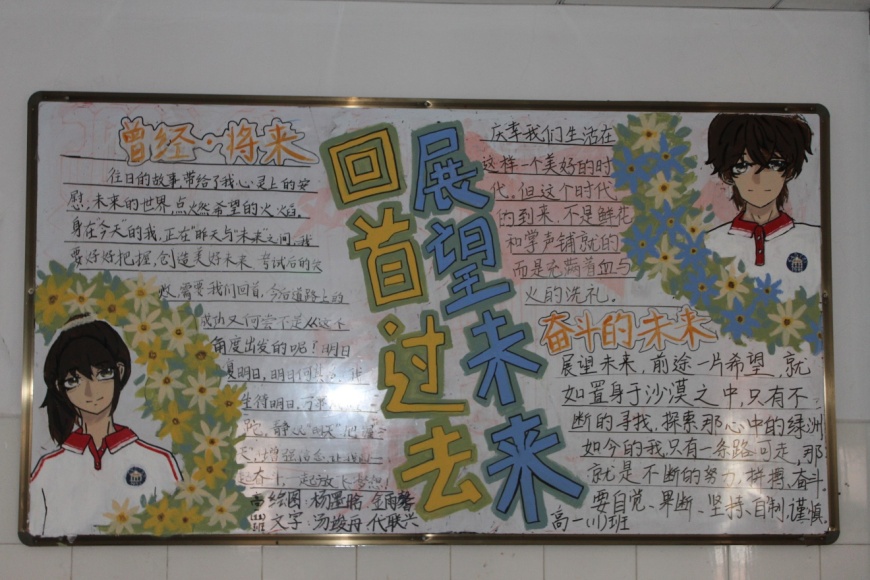 曾经·将来
往日的故事,带给了我心灵上的安
慰,未来的世界点燃希望的火焰。
身在"今天"的我,正在"昨天与"未来"之间,我
要好好把握,创造美好未来。考试后的失
败,需要我们回首,今后道路上的
成功又何尝不是从这个
角度出发的呢?明日
复明日,明日何其
生待明日,
绘图:杨
文字:汤 代联兴
回首·过去
展望未来
庆幸我们生活在
这样一个美好的时
代。但这个时代
的到来,不是鲜花
和掌声铺就的
而是充满着血与
火的洗礼。
奋斗的未来
展望未来,前途一片希望,就
如置身于沙漠之中,只有不
断的寻找,探索那心中的绿洲
如今的我,只有一条路可走,那
就是不断的努力,拼搏,奋斗.
要自觉、果断、坚持、自制、谨慎
高一(11)班